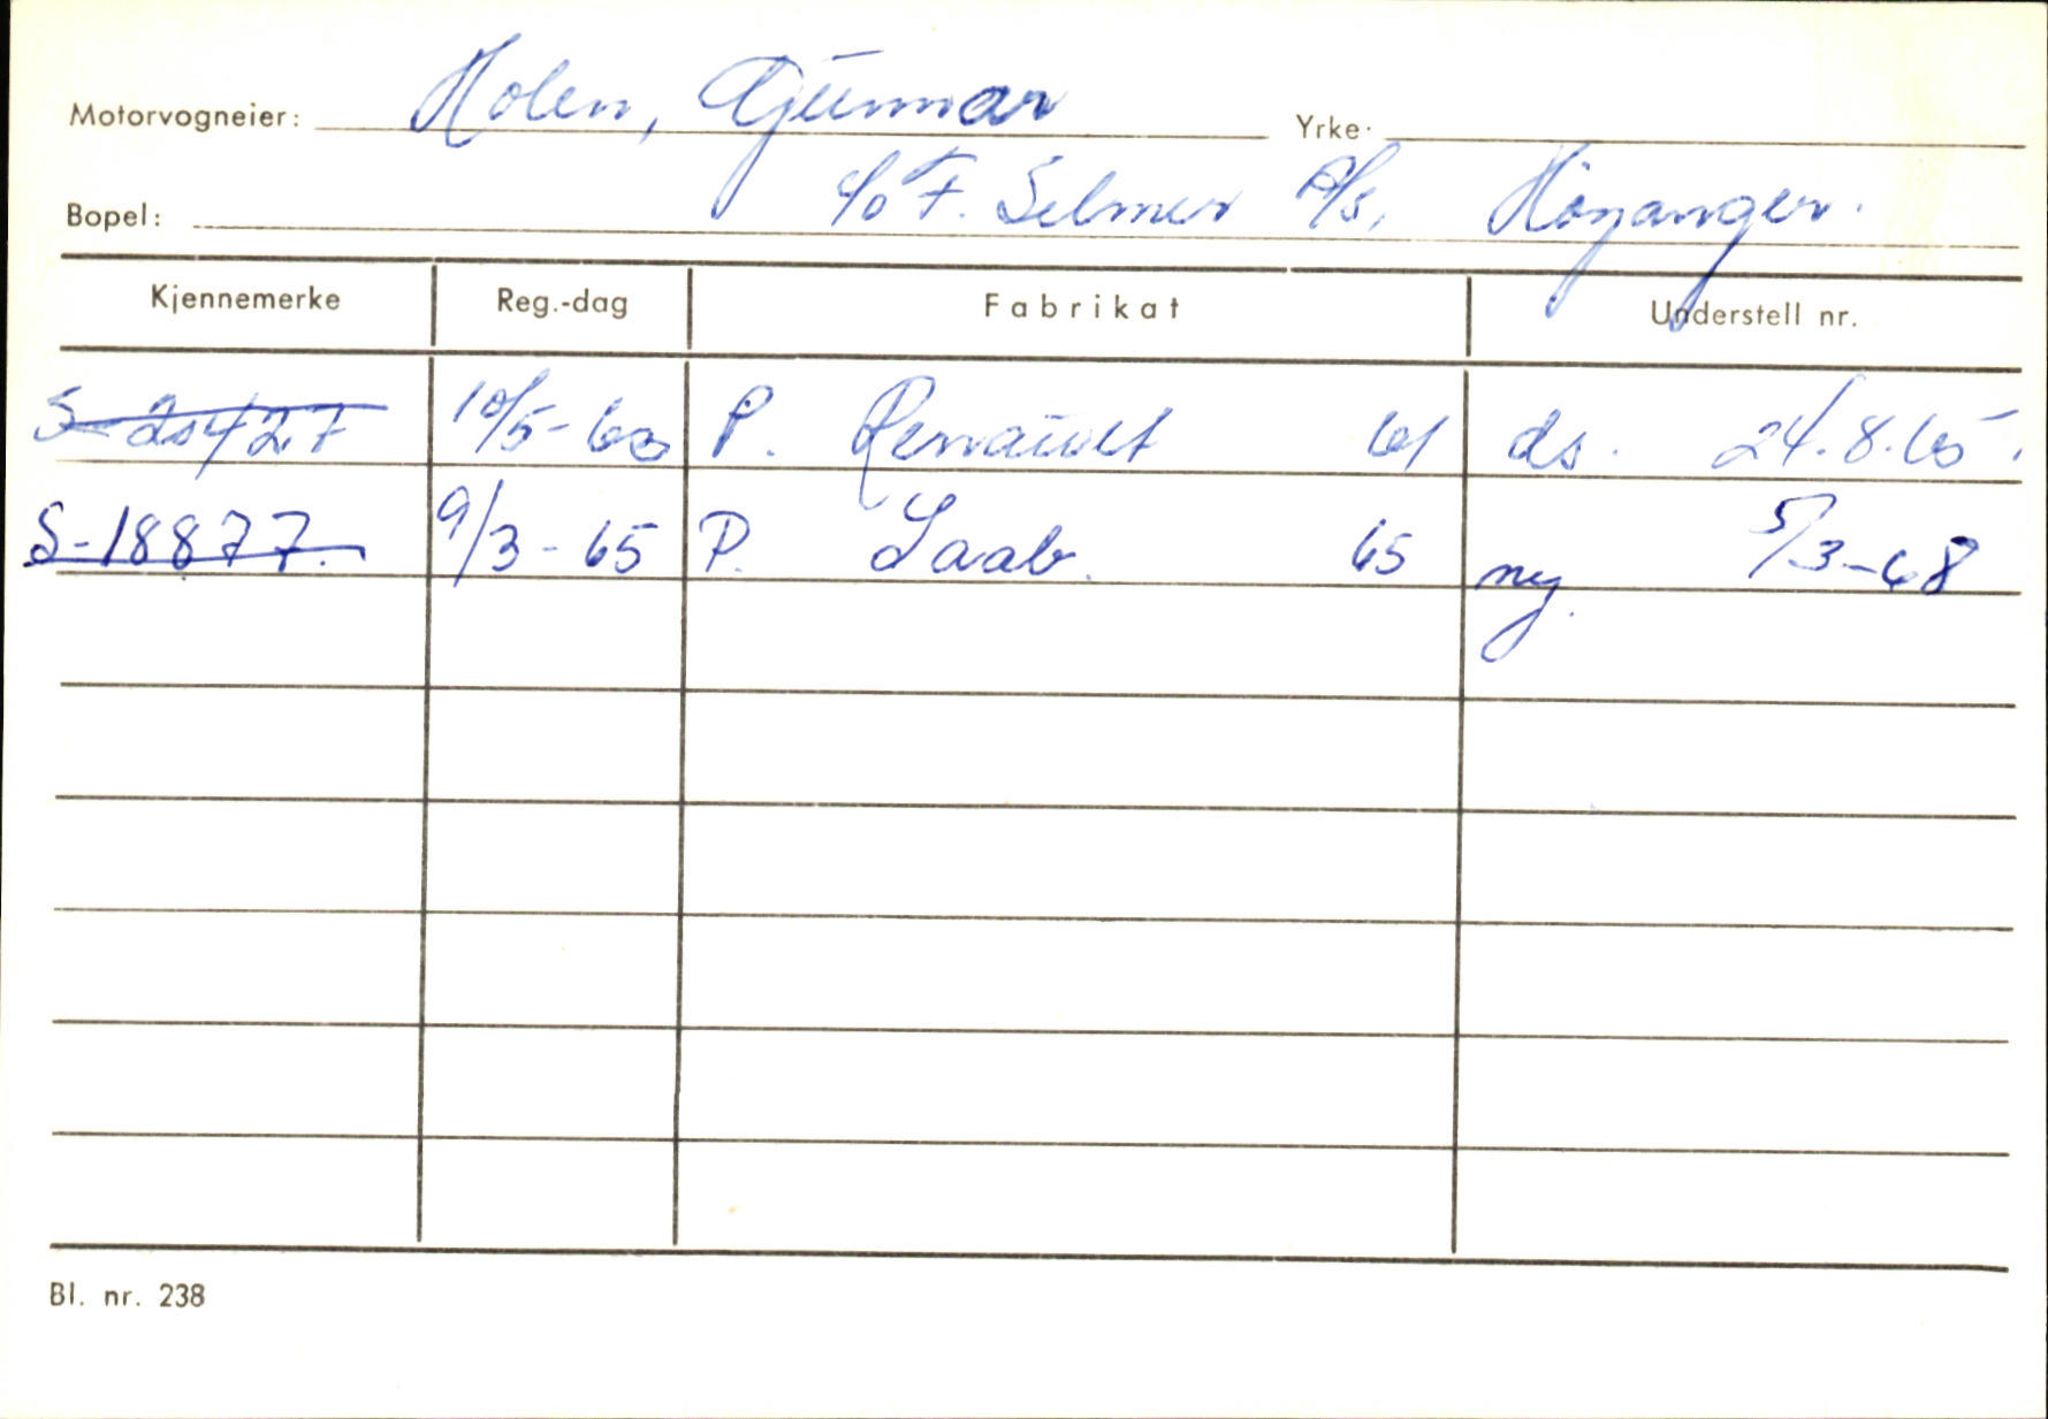 Motorvogneier: Holen, Gunnar Yrke:
Bopel: c/o F. Selmer A/S, Höyanger.
Kjennemerke Reg.-dag Fabrikat Understell nr.
S-20427 10/5-63 P. Renault 61 ds. 24.8.65.
S-18877. 9/3-65 P. Saab. 65 ny. 5/3-68
Bl. nr. 238